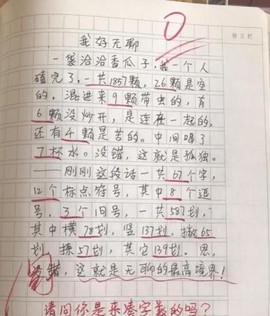 0
我好无聊
一袋洽洽香瓜子,我一个人
磕完了,一共1857颗,26颗是空
的,混进来9颗带虫的,有
6颗没炒开,是连在一起的,
还有4颗是苦的。中间喝了
7杯水。没错,这就是孤独。
——刚刚这段话一共67个字,
12个标点符号,其中8个逗
号,3个句号,一共587划,
其中横178划,竖137划,撇65
划,捺57划,其它139划。恩,
没错,这就是无聊的最高境界!
请问你是来凑字数的吗?